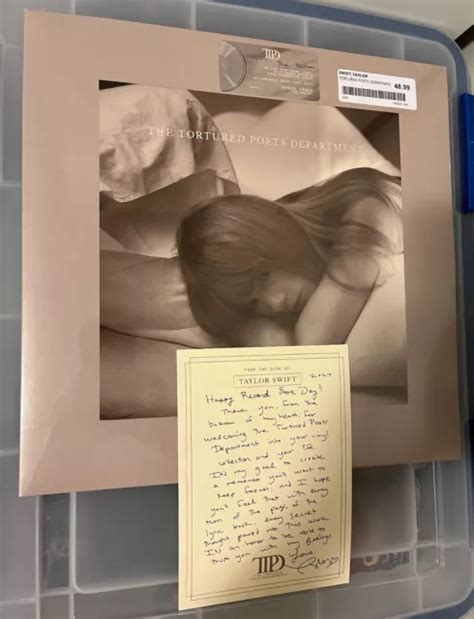 TTPD
SWIFT,TAYLOR
TORTURED POETS DEPARTMENT
48.99
THE TORTURED POETS DEPARTMENT
FROM THE DESK OF
TAYLOR SWIFT
2024
Happy Record Store Day!
Thank you, from the
bottom of my heart, for
welcoming The Tortured Poets
Department into your vinyl
collection and your life.
It's my goal to create
a memento you'll want to
keep forever, and I hope
you'll feel that with every
turn of the page, of the
lyric book, every secret
thought poured into this work.
It's an honor to be able to
trust you with my feelings.
Love
TTPD